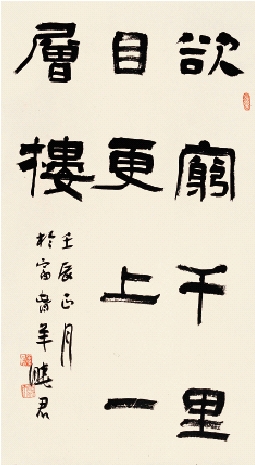 欲窮千里
目更上一
層樓
壬辰正月
於富春羊曉君